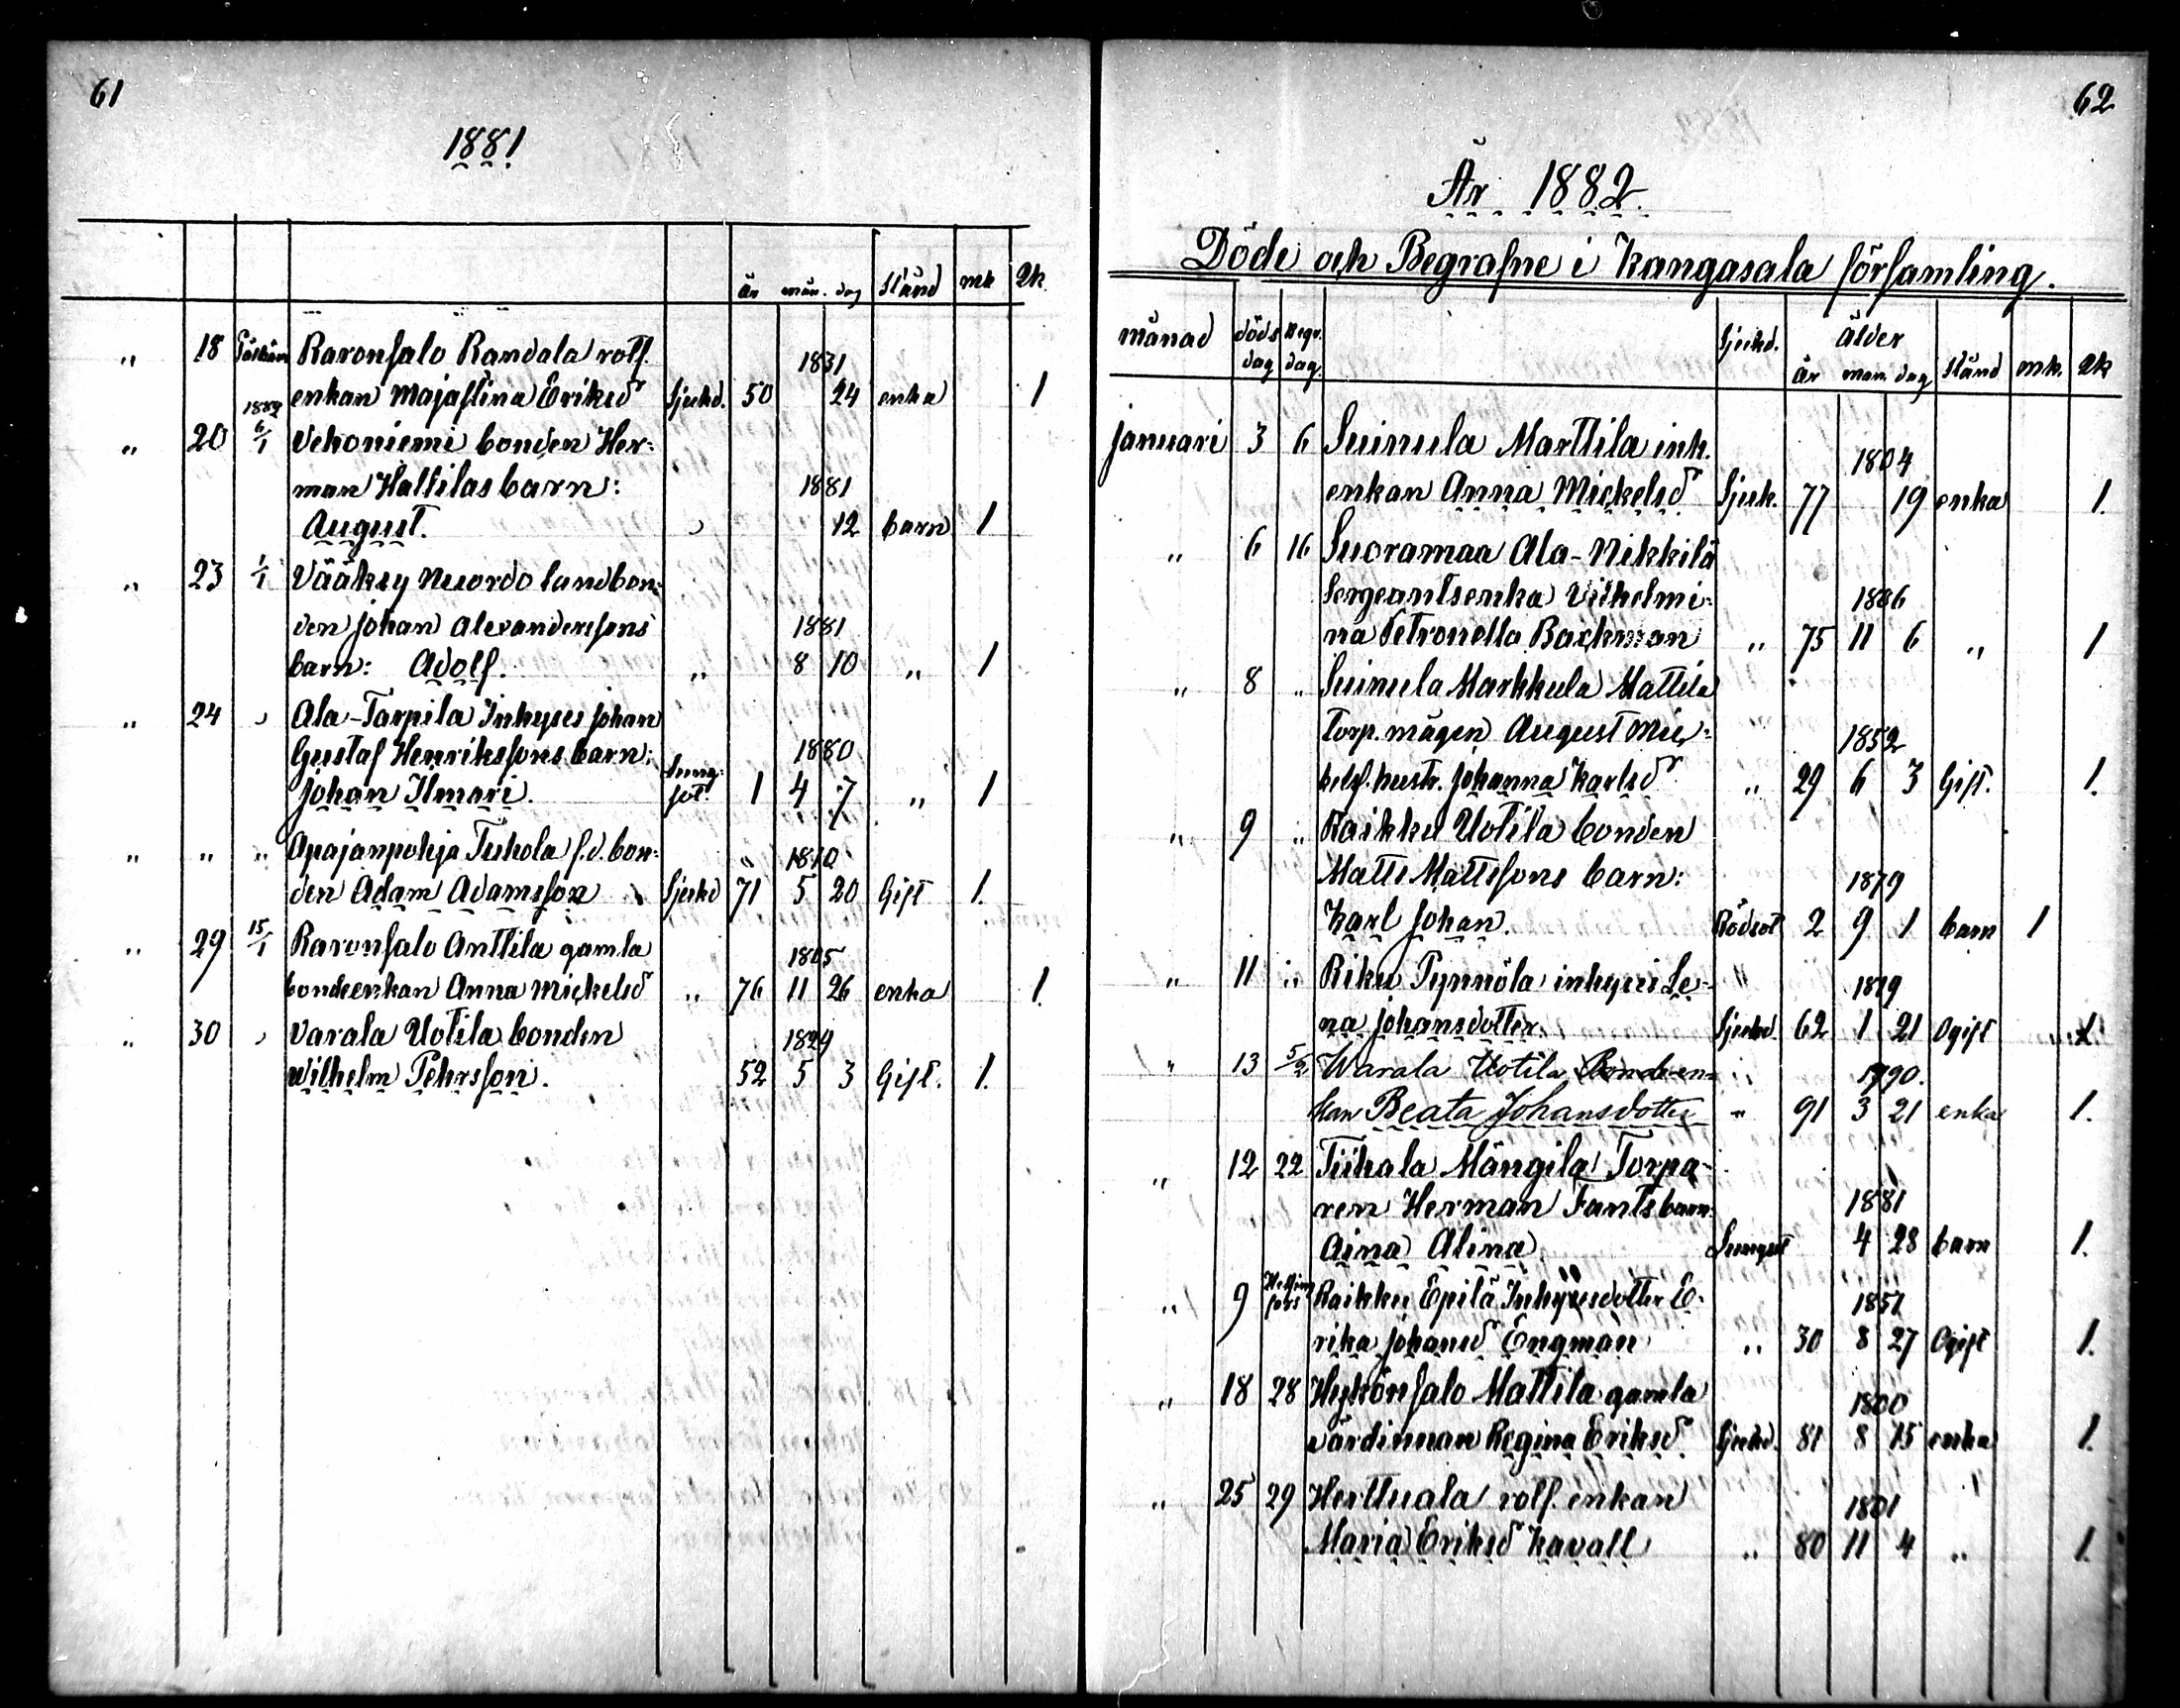 61
1881
år mån. dag stånd mk qk.
" 18 Raronsalo Randala rotf. 1831
enkan Majastina Eriksdr Sjukd. 50 24 enka 1
1882
" 20 6/1 Vekoniemi bonden Her-
man Hattilas barn: 1881
August. " 12 barn 1
" 23 1/1 Vääksy Nuordo landbon-
den Johan Alexanderssons 1881
barn: Adolf. " 8 10 " 1
" 24 " Ala-Tarpila Inhyses Johan
Gustaf Henrikssons barn: 1880
Johan Ilmari. Lung-
sot. 1 4 7 " 1
" " " Apajanpohja Tuhola f.d. bon- 1810
den Adam Adamsson Sjukd 71 5 20 Gift 1.
" 29 15/1 Raronsalo Anttila gamla 1805
bondeenkan Anna Mickelsd " 76 11 26 enka 1.
" 30 " Varala Uotila bonden 1829
Wilhelm Pehrsson. 52 5 3 Gift. 1.
62
År 1882.
Döde och Begrafne i Kangasala församling.
månad döds dag Begr. dag. Sjukd. ålder
år mån. dag stånd mk. qk
Januari 3 6 Suinula Marttila inh. 1804
enkan Anna Mickelsd Sjuk. 77 19 enka 1.
" 6 16 Suoramaa Ala-Nikkilä
Sergeantsenka Vilhelmi- 1806
na Petronella Backman " 75 11 6 " 1
" 8 " Suinula Markkula Mattila
torp. mågen August Mic- 1852
kelss. hustr. Johanna Karlsdr " 29 6 3 Gift. 1.
" 9 " Raikku Uotila bonden
Matts Mattssons barn: 1879
Karl Johan. Rödsot 2 9 1 barn 1
" 11 " Riku Pynnölä inhyses Le- " 1819
na Johansdotter. Sjukd. 62 1 21 Ogift 1.
" 13 5/2 Warala Uotila Bondeen- 1790.
kan Beata Johansdotter " 91 3 21 enka 1.
" 12 22 Tiihala Mängilä Torpa-
ren Herman Fants barn: 1881
Aina Alina Lungsot 4 28 barn 1.
" 9 Helsing
fors Raikku Epilä Inhysesdotter E- 1851
rika Johansd Engman " 30 8 27 Ogift 1.
" 18 28 Hykönsalo Mattila gamla 1800
värdinnan Regina Eriksd. Sjukd. 81 8 15 enka 1.
" 25 29 Herttuala rotf. enkan 1801
Maria Eriksd Kavall " 80 11 4 " 1.